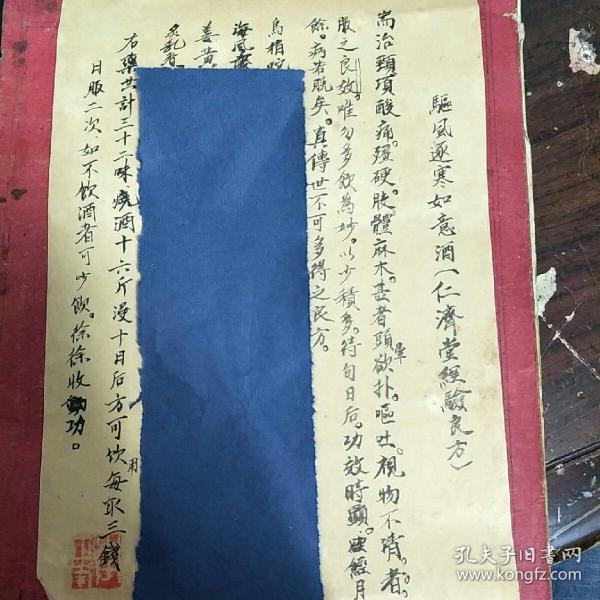 驅風逐寒如意酒(仁濟堂經驗良方)
耑治頸項酸痛。强硬。肢體麻木。甚者頭暈欲扑。嘔吐。視物不清。者。
服之良效。唯勿多飲為妙。以少積多。待旬日后。功效時顕。經月
餘。病若脱矣。真傳世不可多得之良方。
烏梢
海風
姜黄
右藥共計三十二味燒酒十六斤浸十日后方可饮用每取三錢
日服二次。如不飲酒者可少飲。徐徐收功。
孔夫子旧書网
www.kongfz.com